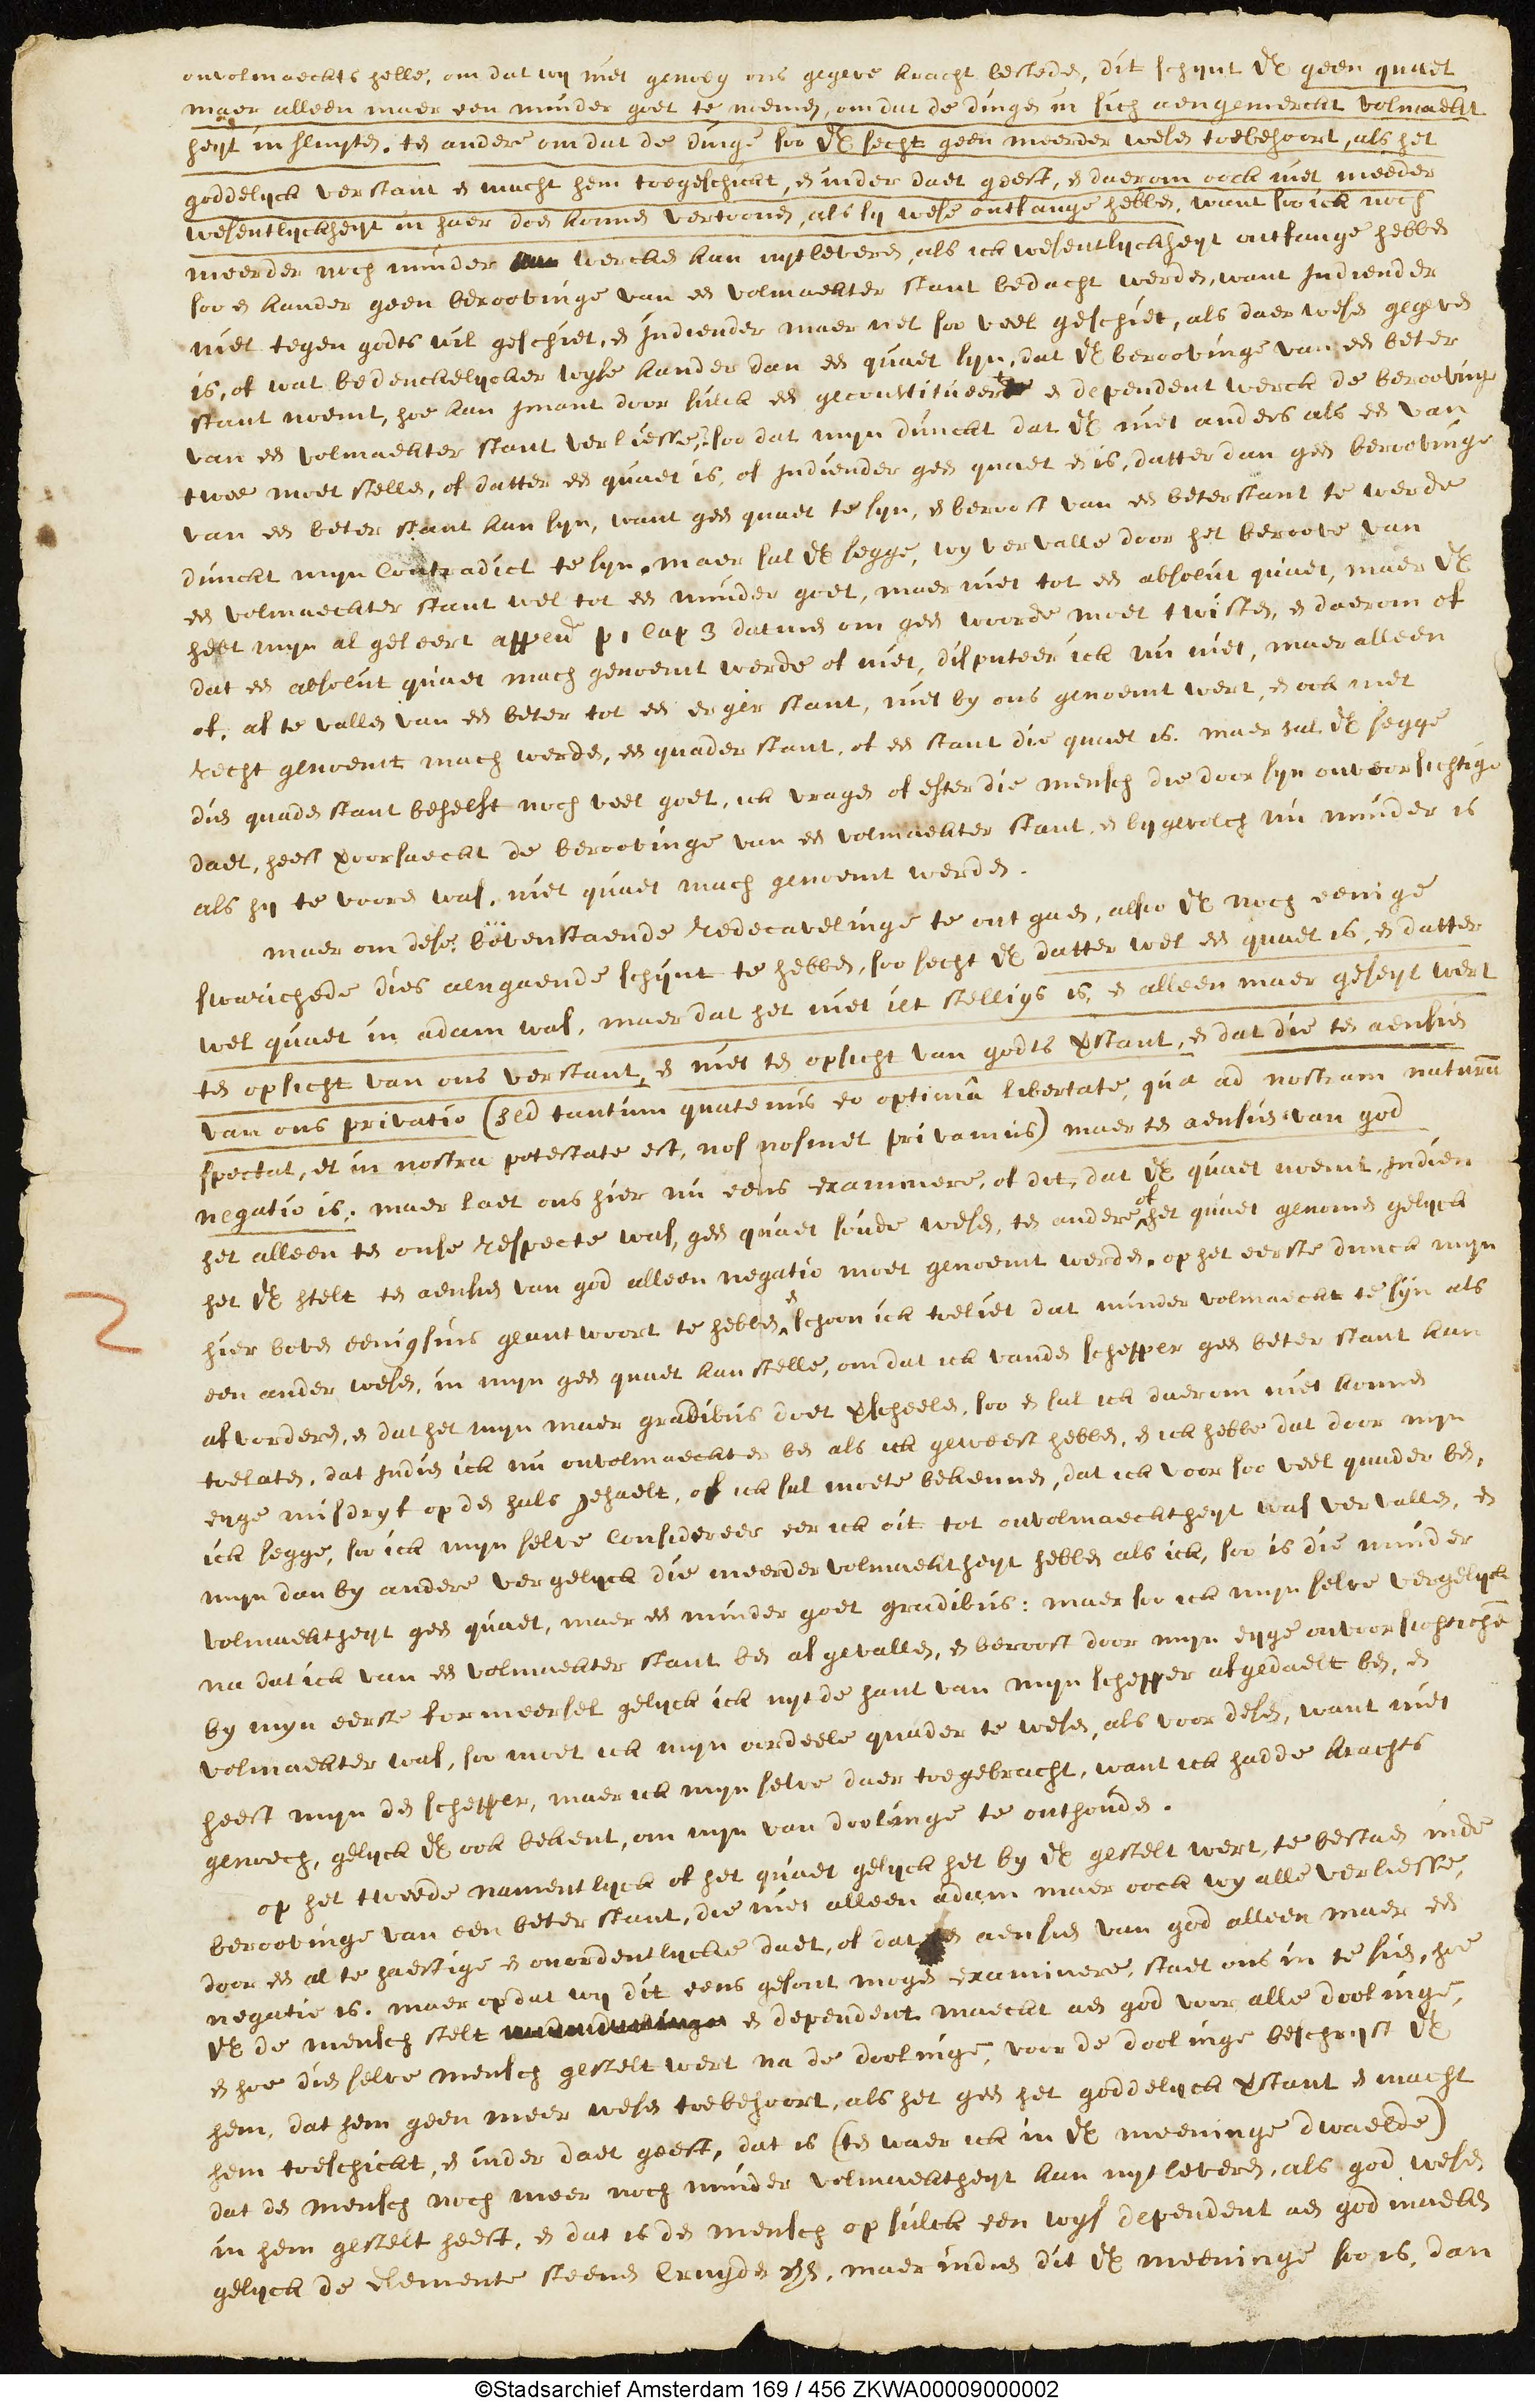 onvolmaeckts helle, om dat wy niet genoeg ons gegeve kracht bestede, dit schynt UE geen quaet
maer alleen maer een minder goet te nemen, om dat de dingen in sich aengemerckt volmaeckt
heyt in sluyten. ten andere om dat de dinge soo UE secht geen meerder wesen toebehoort, als het
goddelyck verstant en macht hem toegeschickt, en inder daet geeft, en daerom oock niet meeder
wesentlyckheyt in haer doen konnen vertoonen, als sy wese ontfange hebben, want soo ick noch
meerder noch minder wercken kan uytleveren, als ick wesentlyckheyt ontfange hebben
soo en kander geen beroovinge van een volmaeckter stant bedacht werden, want Indiender
niet tegen godts wil geschiet, en Indiender maer net soo veel geschiet, als daer wesen gegeven
is, of wat bedenckelycker wyse kander dan een quaet syn, dat UE beroovinge van een beter
stant noemt, hoe kan Imant door sulck een geconstitueert en dependent werck de beroovinge
van een volmaeckter stant verliesse, soo dat myn dunckt dat UE niet anders als een van
twee moet stellen, of datter een quaet is, of Indiender geen quaet en is, datter dan geen beroovinge
van een beter stant kan syn, want geen quaet te syn, en berooft van een beter stant te werde
dunckt myn Contradict te syn. maer sal UE segge, wy vervalle door het beroove van
een volmaeckter stant wel tot een minder goet, maer niet tot een absolut quaet, maer UE
hebt myn al geleert append p 1 Cap 3 datmen om geen woorde moet twisten, en daerom of
dat een absolut quaet mach genoemt werde of niet, disputeer ick nu niet, maer alleen
of, af te vallen van een beter tot een erger stant, niet by ons genoemt wert, en ock met
recht genoemt mach werden, een quader stant, of een stant die quaet is. maer sal UE segge
dien quaden stant behelst noch veel goet, ick vragen of efter die mensch die door syn onvoorsichtige
daet, heeft veroorsaeckt de beroovinge van een volmaeckter stant, en bygevolch nu minder is
als hy te vooren was, niet quaet mach genoemt werden.
maer om dese bovenstaende redecavelinge te ont gaen, alsoo UE noch eenige
swarichede dies aengaende schynt te hebben, soo secht UE datter wel een quaet is, en datter
wel quaet in adam was, maer dat het niet iet stelligs is, en alleen maer geseyt wert
ten opsicht van ons verstant, en niet ten opsicht van godts verstant, en dat die ten aensien
van ons privatio (sed tantum quatenus eo optimâ libertate, quæ ad nostram naturam
spectat, et in nostra potestate est, nos nosmet privamus) maer ten aensien van god
negatio is; maer laet ons hier nu eens examinere, of dit, dat UE quaet noemt, Indien
het alleen ten onse respecte was, geen quaet soude wesen, ten andere of het quaet genomen gelyck
het UE stelt ten aensien van god alleen negatio moet genoemt werden. op het eerste dunck myn
hier boven eenigsins geantwoort te hebben, en schoon ick toeliet dat minder volmaeckt te syn als
een ander wesen, in myn geen quaet kan stelle, om dat ick vanden schepper geen beter stant kan
afvorderen, en dat het myn maer gradibus doet verscheelen, soo en sal ick daerom niet konnen
toelaten, dat Indien ick nu onvolmaeckter ben als ick geweest hebben, en ick hebbe dat door myn
eyge misdryf op den hals gehaelt, of ick sal moete bekennen, dat ick voor soo veel quader ben,
ick segge, soo ick myn selve Considereer eer ick oit tot onvolmaecktheyt was vervallen, en
myn dan by andere vergelyck die meerder volmaecktheyt hebben als ick, soo is die minder
volmaecktheyt geen quaet, maer een minder goet gradibus: maer soo ick myn selve vergelyck
na dat ick van een volmaeckter stant ben afgevallen, en berooft door myn eyge onvoorsichticheit
by myn eerste formeersel gelyck ick uyt de hant van myn schepper afgedaelt ben, en
volmaeckter was, soo moet ick myn oordeele quader te wesen, als voor desen, want niet
heeft myn den schepper, maer ick myn selve daer toe gebracht, want ick hadde krachts
genoech, gelyck UE ook bekent, om myn van doolinge te onthouden.
op het tweede namentlyck of het quaet gelyck het by UE gestelt wert, te bestaen inde
beroovinge van een beter stant, die niet alleen adam maer oock wy alle verliesse,
door een al te haestige en onordentlycke daet, of dat ten aensien van god alleen maer een
negatie is. maer op dat wy dit eens gesont mogen examinere, staet ons in te sien, hoe
UE de mensch stelt en dependent maeckt aen god voor alle doolinge,
en hoe dien selve mensch gestelt wert na de doolinge, voor de doolinge beschryft UE
hem, dat hem geen meer wesen toebehoort, als het geen het goddelyck verstant en macht
hem toeschickt, en inder daet geeft, dat is (ten waer ick in UE meeninge dwaelde)
dat den mensch noch meer noch minder volmaecktheyt kan uytleveren, als god wesen
in hem gestelt heeft, en dat is den mensch op sulck een wys dependent aen god maecken
gelyck de elemente steenen Cruyden etc, maer indien dit UE meeninge soo is, dan
©Stadsarchief Amsterdam 169 / 456 ZKWA00009000002